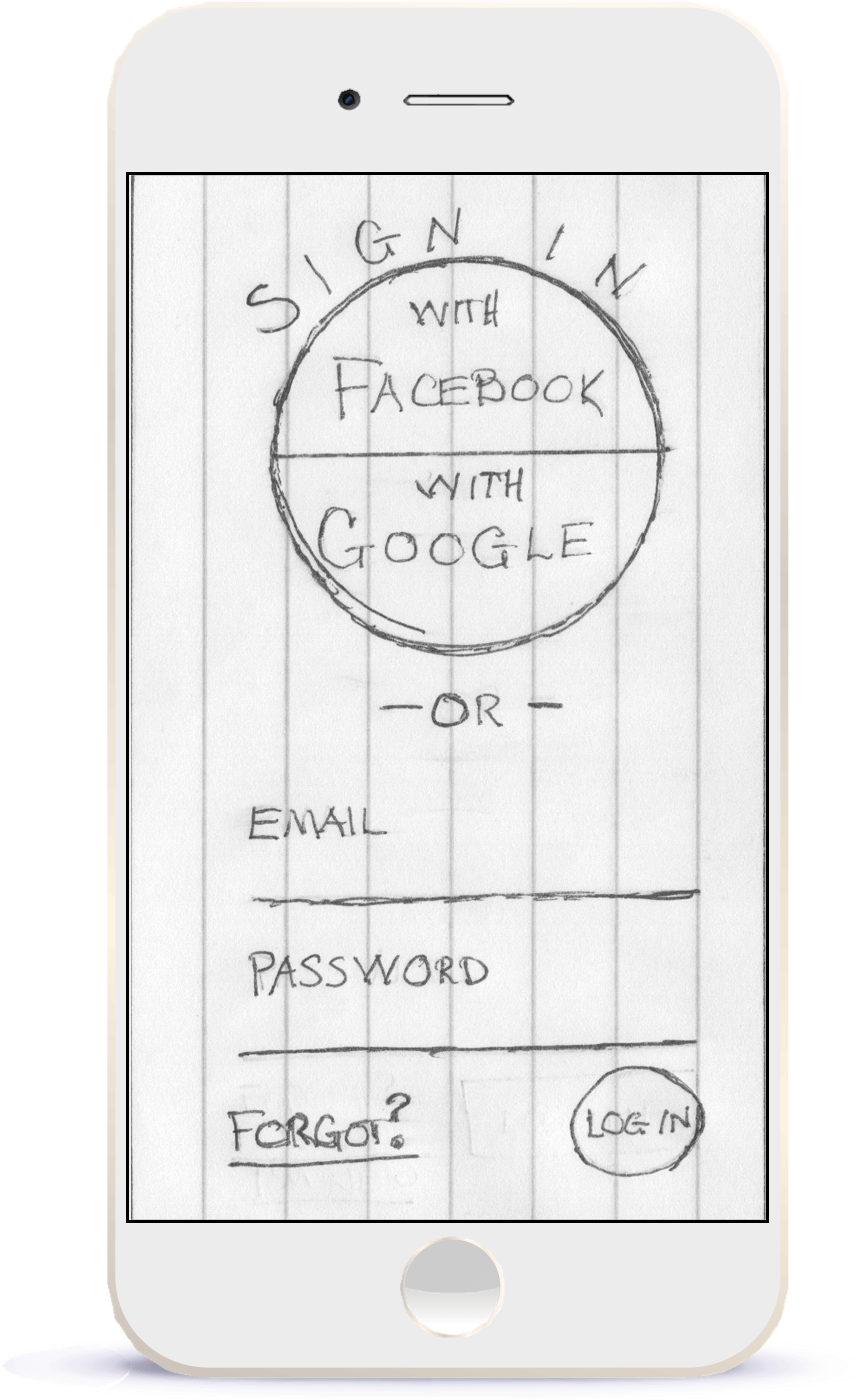 SIGN IN
WITH
FACEBOOK
WITH
GOOGLE
-OR-
EMAIL
PASSWORD
FORGOT?
LOG IN